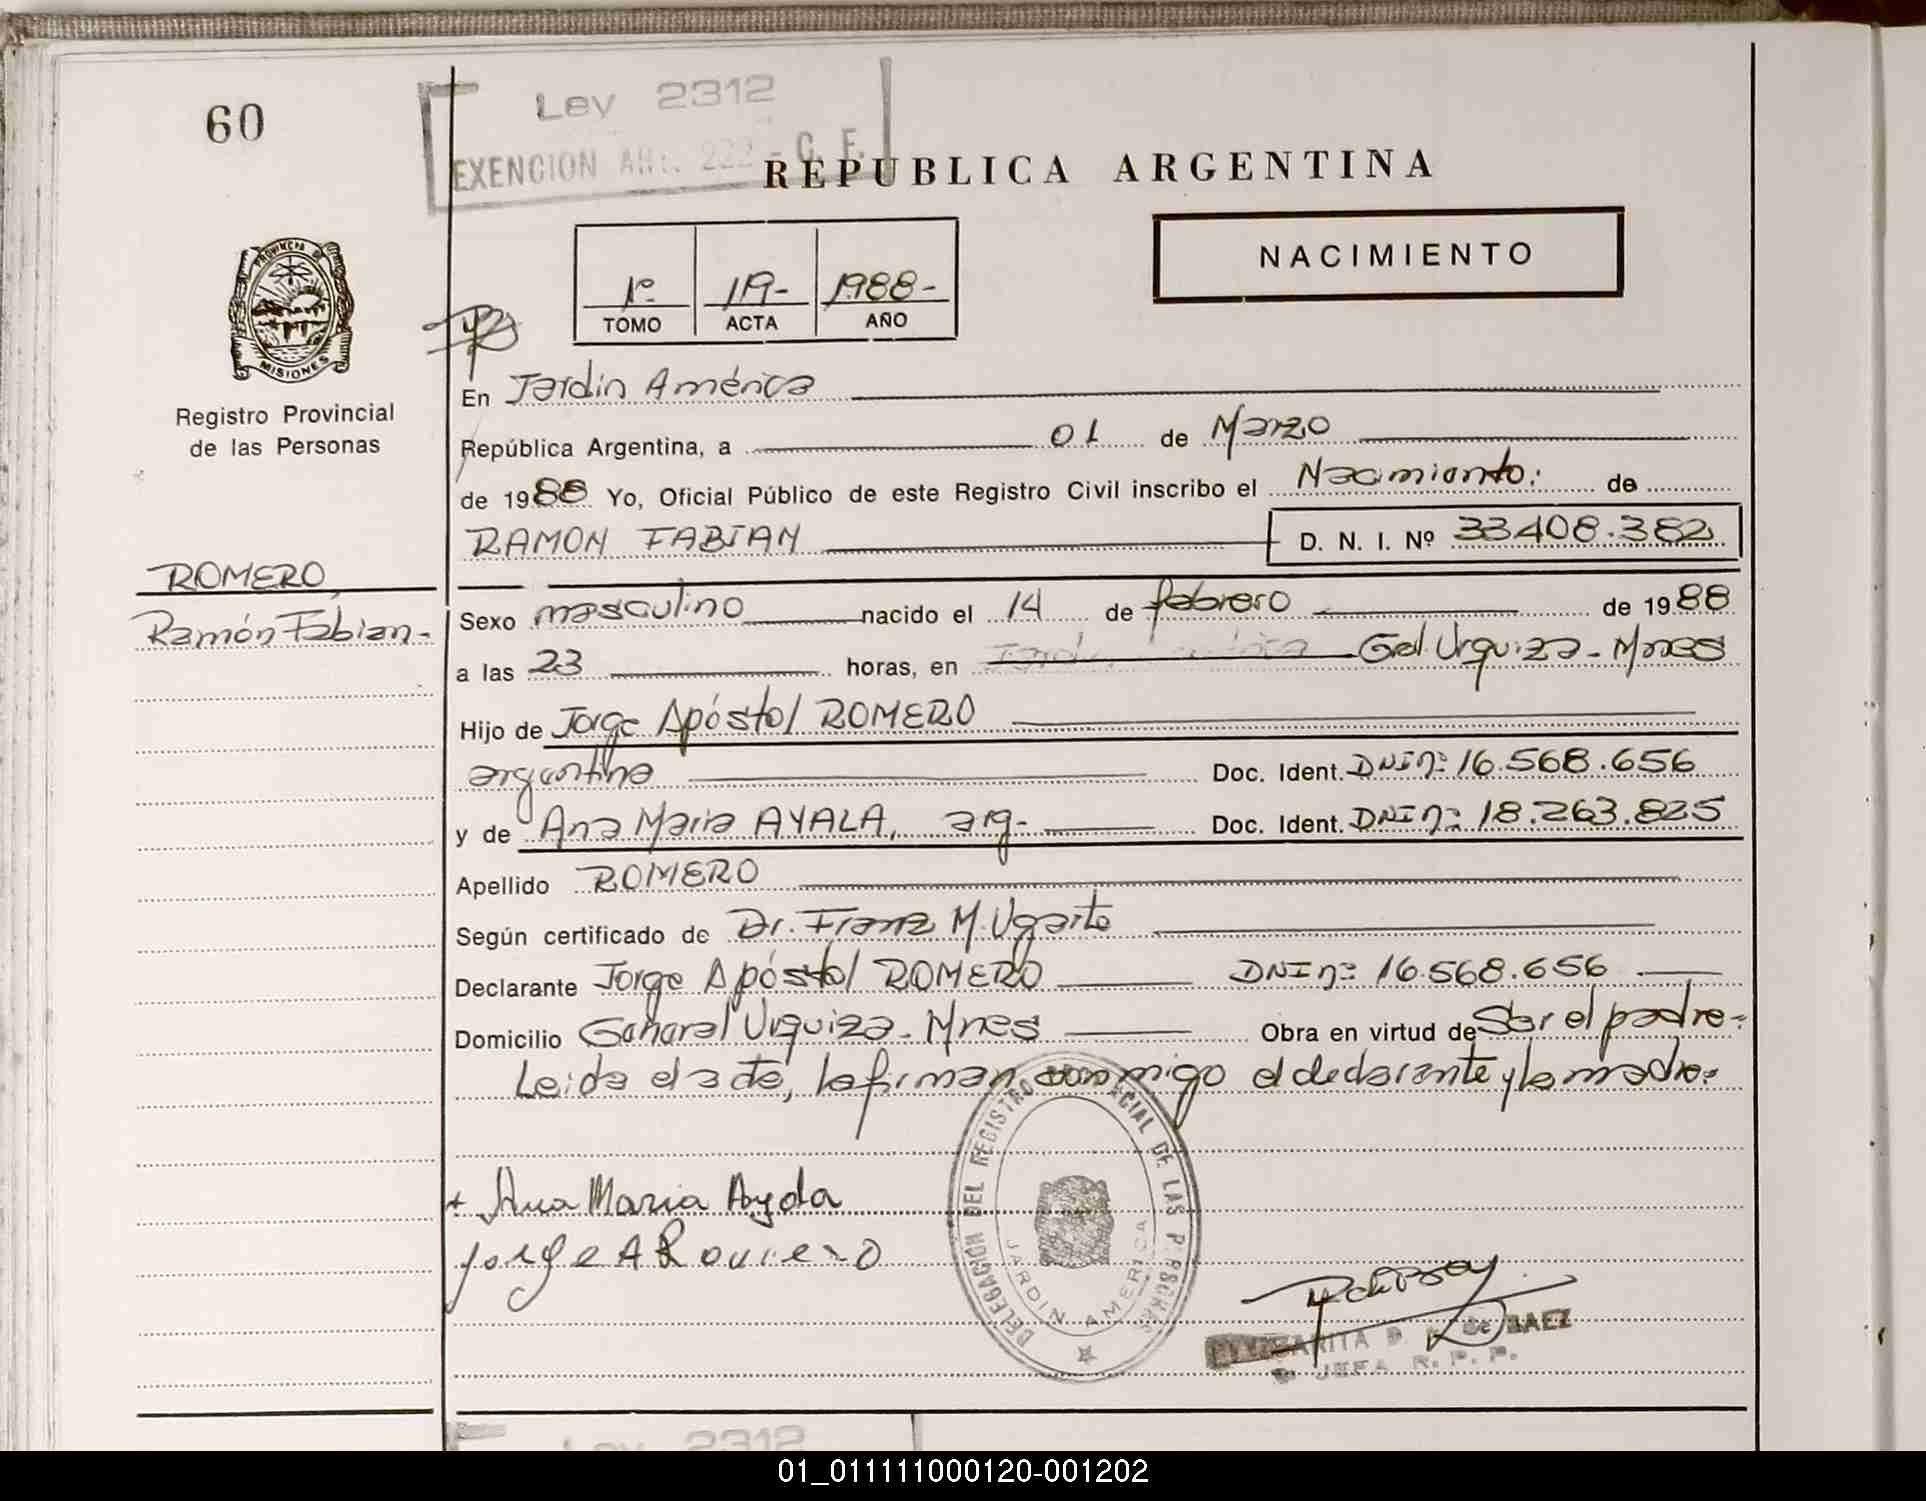 60
Ley 2312
EXENCION Art. 222 - C. F.
REPUBLICA ARGENTINA
NACIMIENTO
1º 119- 1988-
TOMO ACTA AÑO
PROVINCIA DE
MISIONES
Registro Provincial
de las Personas
ROMERO,
Ramón Fabian-
En Jardin América
República Argentina, a 01 de Marzo
de 1988 Yo, Oficial Público de este Registro Civil inscribo el Nacimiento: de
RAMON FABIAN D. N. I. Nº 33408.382
Sexo masculino nacido el 14 de febrero de 1988
a las 23 horas, en Gral Urquiza - Mnes
Hijo de Jorge Apóstol ROMERO
argentino Doc. Ident. DNI nº 16.568.656
y de Ana Maria AYALA, arg- Doc. Ident. DNI nº 18.263.825
Apellido ROMERO
Según certificado de Dr. Franz M. Ugarte
Declarante Jorge Apóstol ROMERO DNI nº 16.568.656
Domicilio General Urquiza - Mnes Obra en virtud de Ser el padre-
Leida el acta, la firman conmigo el declarante y la madre.
+ Ana Maria Ayala
Jorge A Romero
DELEGACIÓN DEL REGISTRO PROVINCIAL DE LAS PERSONAS
JARDIN AMERICA
de BAEZ
JEFA R. P. P.
Ley 2312
01_011111000120-001202